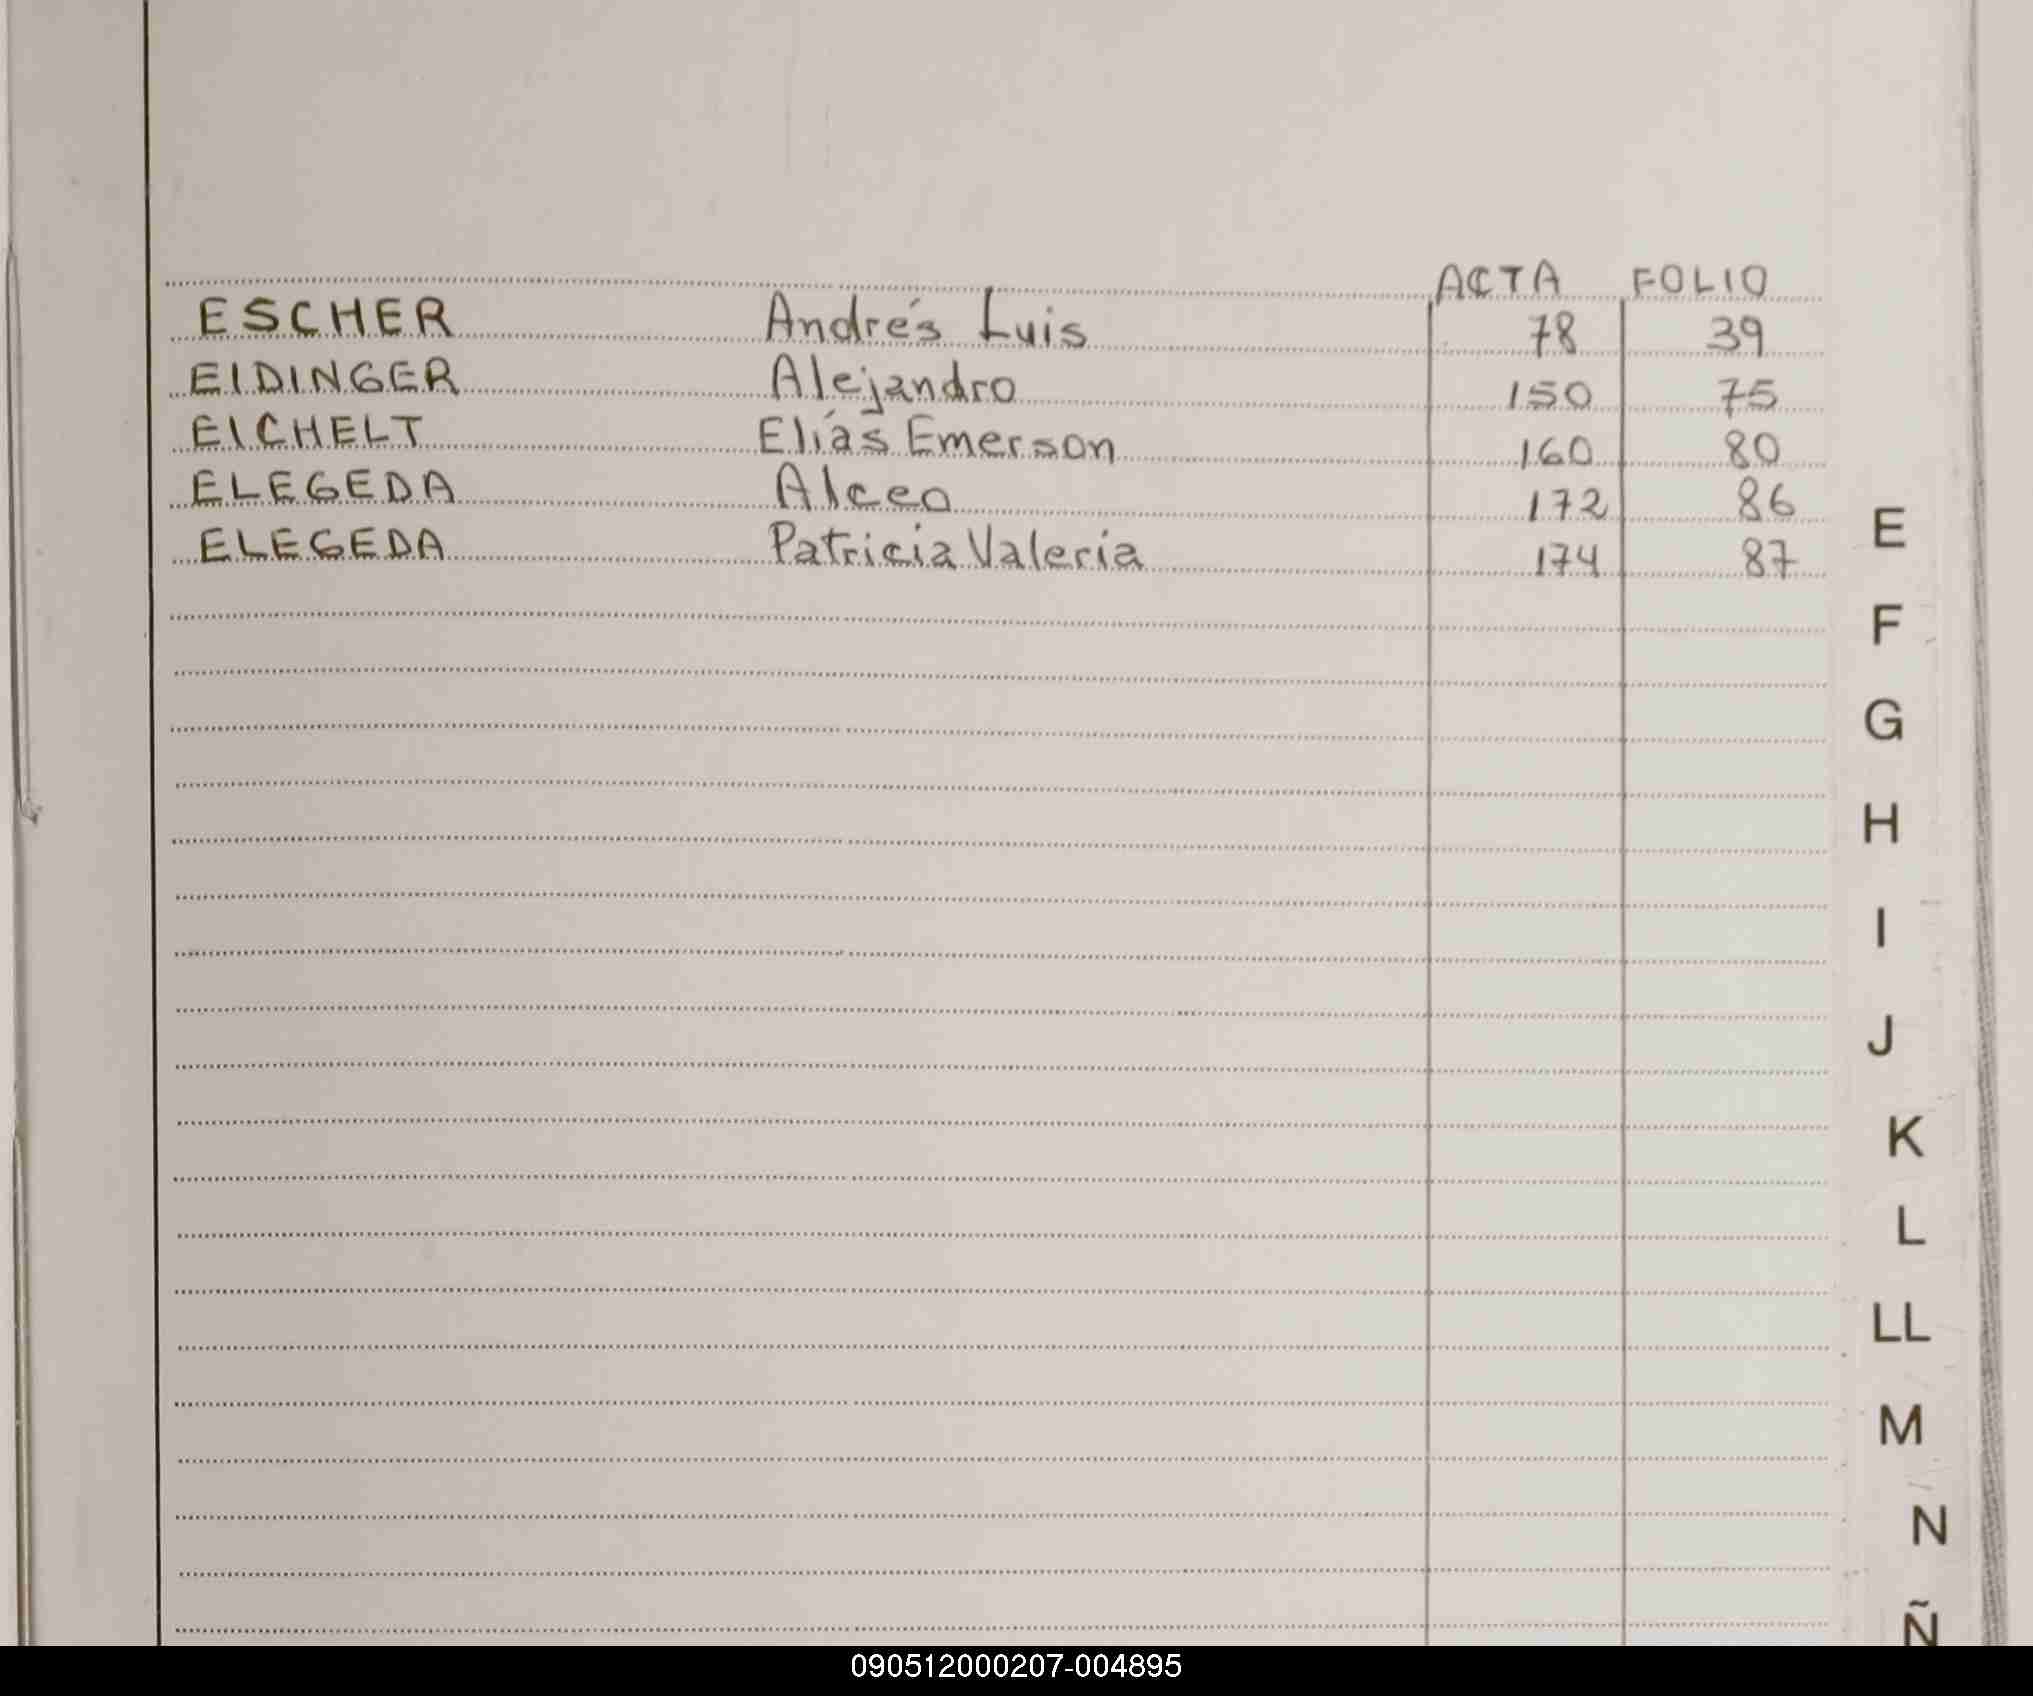 ACTA FOLIO
ESCHER Andrés Luis 78 39
EIDINGER Alejandro 150 75
EICHELT Elías Emerson 160 80
ELEGEDA Alceo 172 86
ELEGEDA Patricia Valeria 174 87
E
F
G
H
I
J
K
L
LL
M
N
Ñ
090512000207-004895